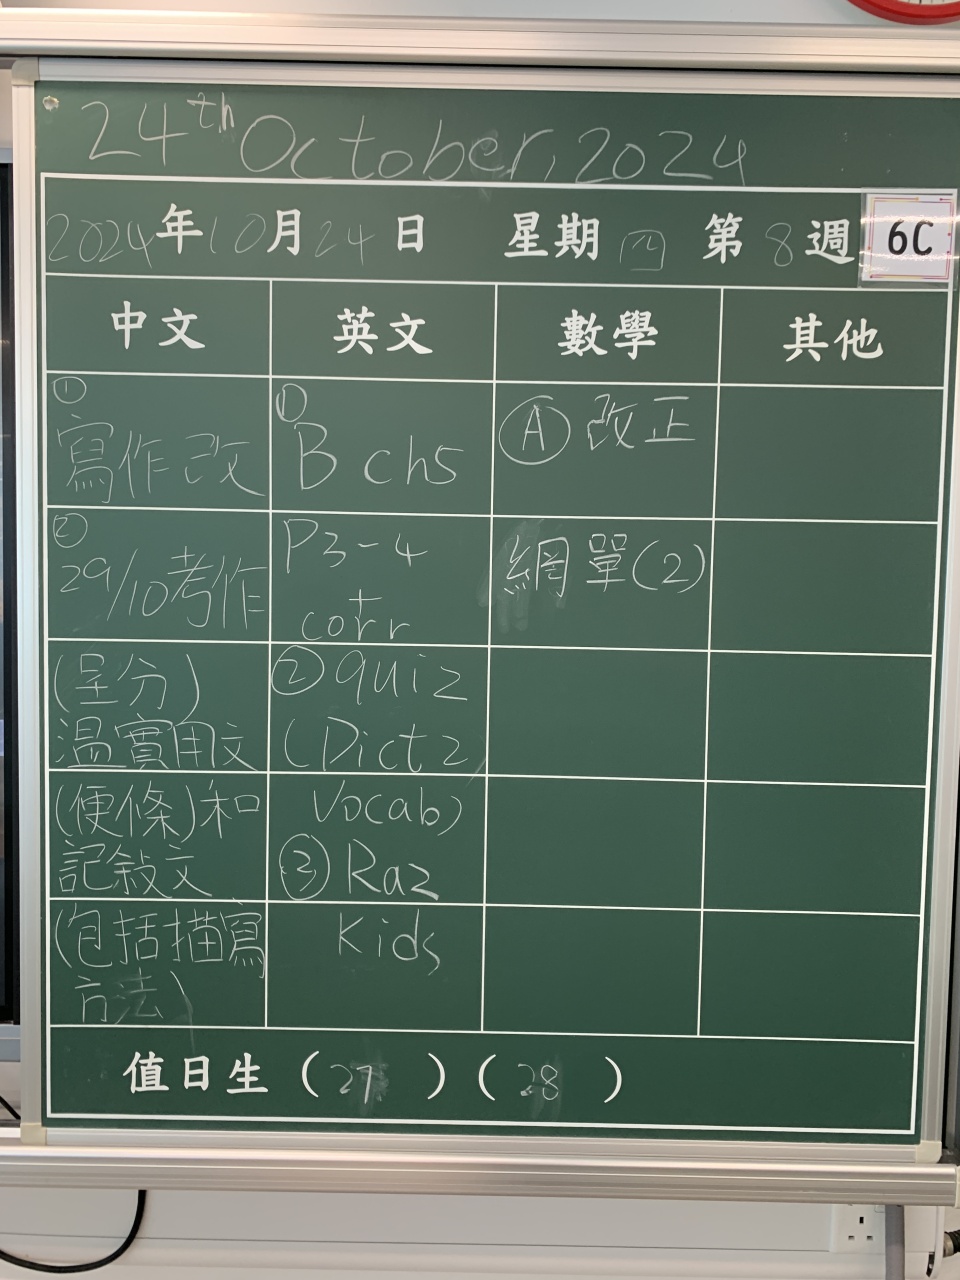 24th October, 2024
2024年10月24日 星期四 第8週 6C
中文 英文 數學 其他
①
寫作改
②
29/10考作
(呈分)
溫實用文
(便條)和
記敍文
(包括描寫
方法)
①
B ch5
P3-4
+
corr
② quiz
(Dict 2
Vocab)
③ Raz
Kids
Ⓐ 改正
網單(2)
值日生 (27) (28)